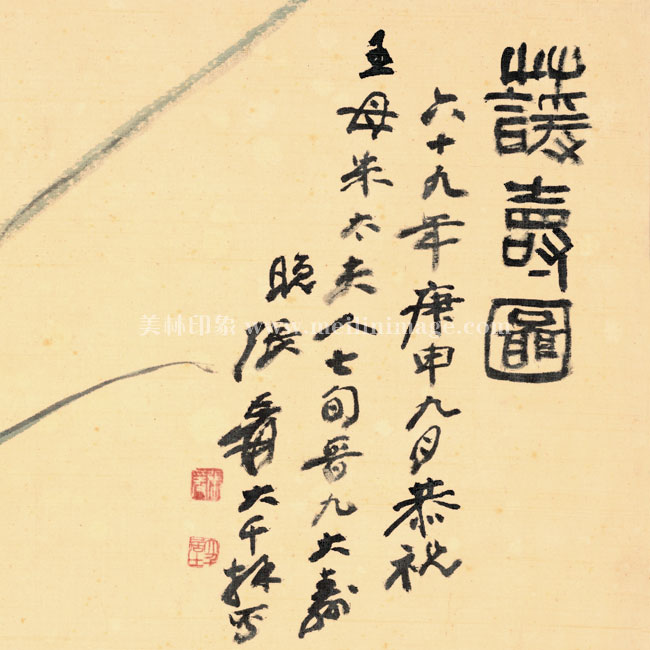 蘐壽圖
六十九年庚申九月恭祝
王母朱太夫人七旬晉九大壽
晚張爰大千拜寫
美林印象 www.meilinimage.com